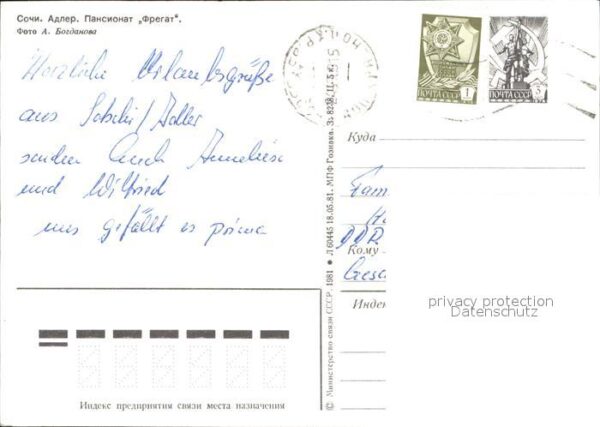 Сочи. Адлер. Пансионат „Фрегат“.
Фото А. Богданова
Herzliche Urlaubsgrüße
aus Sotschi / Adler
senden Euch Annelies
und Wilfried
uns gefällt es prima
ПОЧТА СССР 1
ПОЧТА СССР 3
Куда
Fam
DDR
Кому
Индек
privacy protection
Datenschutz
© Министерство связи СССР. 1981 ● Л 60445 18.05.81. МПФ Гознака. З.
Индекс предприятия связи места назначения